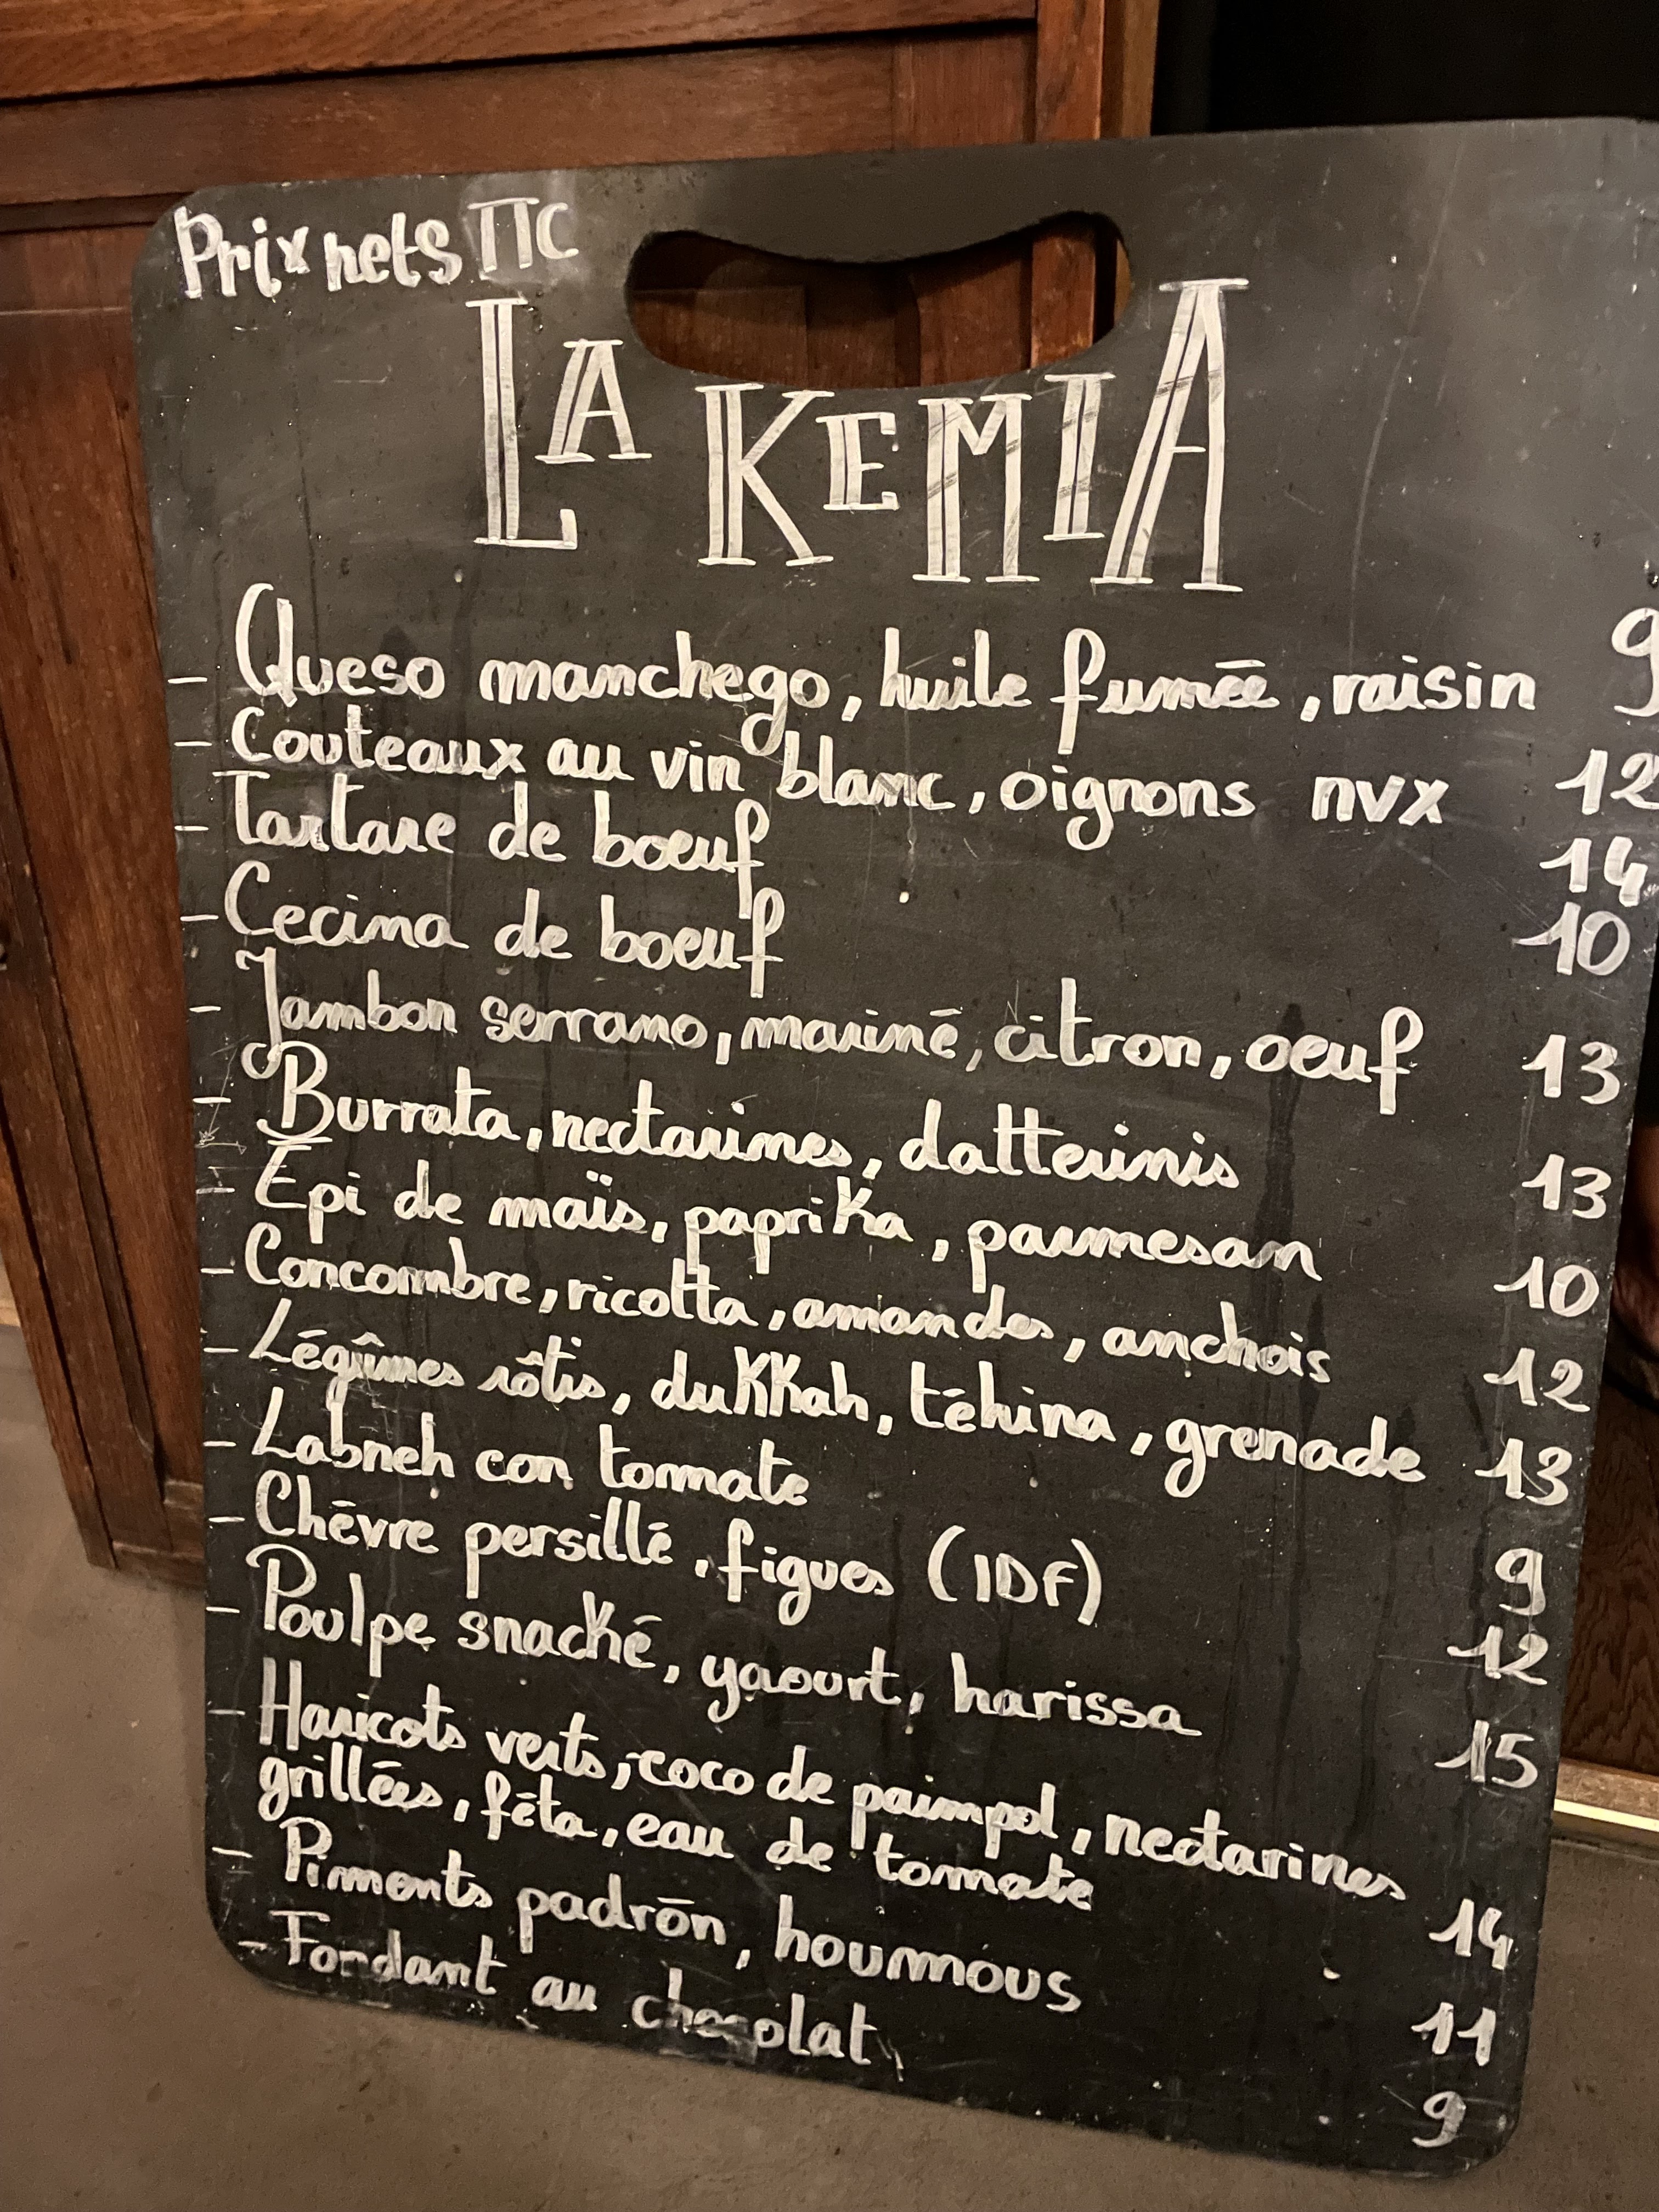 Prix nets TTC
LA KEMIA
- Queso manchego, huile fumée, raisin 9
- Couteaux au vin blanc, oignons nvx 12
- Tartare de boeuf 14
- Cecina de boeuf 10
- Jambon serrano, mariné, citron, oeuf 13
- Burrata, nectarines, datterinis 13
- Epi de maïs, paprika, parmesan 10
- Concombre, ricotta, amandes, anchois 12
- Légûmes rôtis, dukkah, téhina, grenade 13
- Labneh con tomate 9
- Chèvre persillé, figues (IDF) 12
- Poulpe snacké, yaourt, harissa 15
- Haricots verts, coco de paimpol, nectarines
grillées, féta, eau de tomate 14
- Piments padrón, houmous 11
- Fondant au chocolat 9